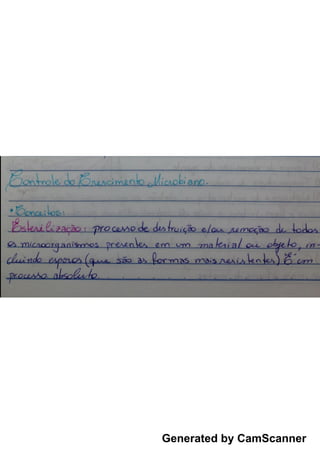 Controle do Crescimento Microbiano.
• Conceitos:
Esterilização: processo de destruição e/ou remoção de todos
os microorganismos presentes em um material ou objeto, in-
cluindo esporos (que são as formas mais resistentes) É um
processo absoluto.
Generated by CamScanner